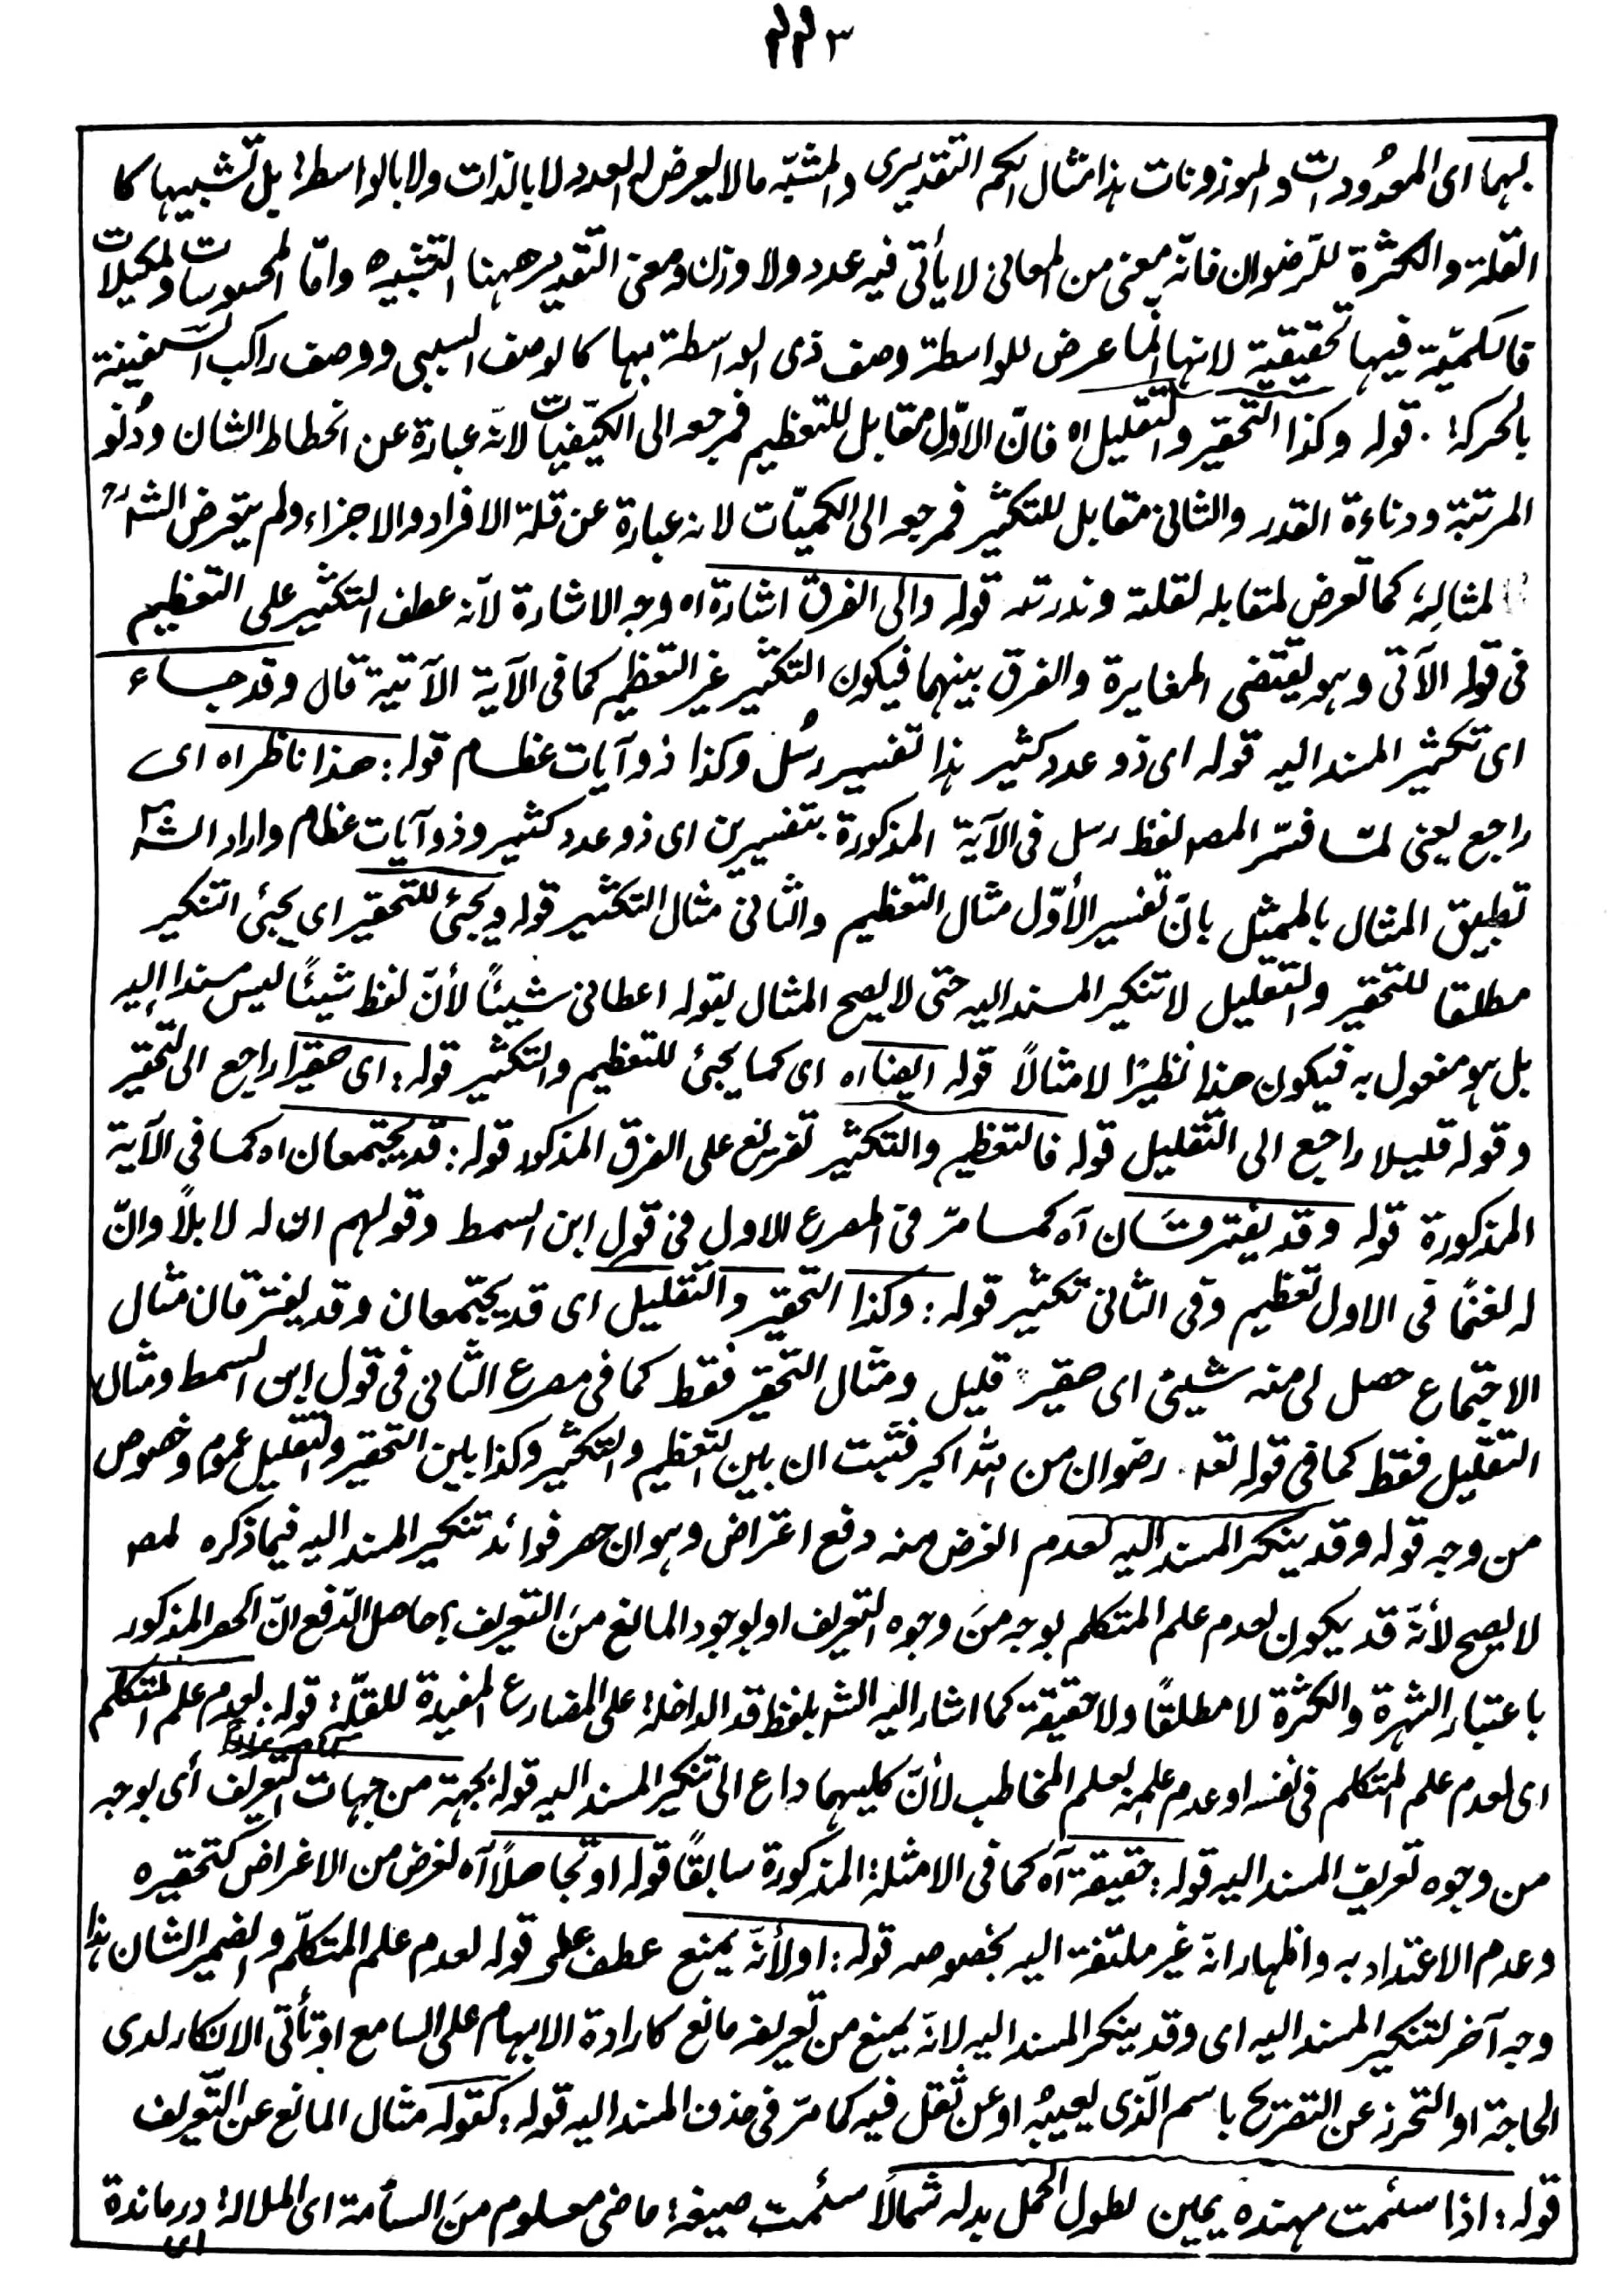 ٢٢٣
بهما اى المعدودات والموزونات هذا مثال الكم التقديرى والمشبّه مالا يعرض له العدد لا بالذات ولا بالواسطة بل تشبيها كا
القلة والكثرة للرّضوان فانّه معنى من المعانى لا يأتى فيه عدد ولا وزن ومعنى التقدير ههنا التشبيه وامّا المحسوسات ومكيلات
فالكميّة فيها تحقيقية لانها انما عرض للواسطة وصف ذى الواسطة بها كالوصف السببى ووصف راكب السفينة
بالحركة. قوله وكذا التحقير والتقليل اه فانّ الاوّل مقابل للتعظيم فمرجعه الى الكيفيّات لانّه عبارة عن انحطاط الشان ودُنُو
المرتبة ودناءة القدر والثانى مقابل للتكثير فمرجعه الى الكميّات لانه عبارة عن قلة الافراد والاجزاء ولم يتعرض الشارح
لمثاله كما تعرض لمقابله لقلته وندرته قوله والى الفرق اشارة اه وجه الاشارة لانّه عطف التكثير على التعظيم
فى قوله الآتى وهو يقتضى المغايرة والفرق بينهما فيكون التكثير غير التعظيم كما فى الآية الآتية قال وقد جاء
اى تكثير المسند اليه قوله اى ذو عدد كثير هذا تفسير رسُل وكذا ذو آيات عظام قوله: هذا ناظر اه اى
راجع يعنى لما فسّر المصـ لفظ رسل فى الآية المذكورة بتفسيرين اى ذو عدد كثير وذو آيات عظام واراد الشـ
تطبيق المثال بالممثل بانّ تفسير الأوّل مثال التعظيم والثانى مثال التكثير قوله ويجئ للتحقير اى يجئ التنكير
مطلقا للتحقير والتقليل لا تنكير المسند اليه حتى لا يصح المثال بقوله اعطانى شيئاً لأنّ لفظ شيئاً ليس مسندا إليه
بل هو مفعول به فيكون هذا نظيرًا لا مثالاً قوله ايضا اه اى كما يجئ للتعظيم والتكثير قوله: اى حقيرا راجع الى التحقير
وقوله قليلا راجع الى التقليل قوله فالتعظيم والتكثير تفريع على الفرق المذكور قوله: قد يجتمعان اه كما فى الآية
المذكورة قوله وقد يفترقان آه كما مرّ فى المصرع الاول فى قول ابن السمط وقولهم ان له لابلاً وانّ
له لغنمًا فى الاول تعظيم وفى الثانى تكثير قوله: وكذا التحقير والتقليل اى قد يجتمعان وقد يفترقان مثال
الاجتماع حصل لى منه شيئ اى حقير قليل ومثال التحقير فقط كما فى مصرع الثانى فى قول ابن السمط ومثال
التقليل فقط كما فى قوله تعـ. رضوان من الله اكبر فثبت ان بين التعظيم والتكثير وكذا بين التحقير والتقليل عموم وخصوص
من وجه قوله وقد ينكر المسند اليه لعدم الغرض منه دفع اعتراض وهو ان حصر فوائد تنكير المسند اليه فيما ذكره المصـ
لا يصح لأنّه قد يكون لعدم علم المتكلم بوجه منَ وجوه التعريف او لوجود المانع منَ التعريف؟ حاصل الدّفع انّ الحصر المذكور
باعتبار الشهرة والكثرة لا مطلقًا ولا حقيقة كما اشار اليه الشـ بلفظ قد الداخلة على المضارع المفيدة للقلّة قوله: لعدم علم المتكلم
اى لعدم علم المتكلم فى نفسه او عدم علمه بعلم المخاطب لأنّ كليهما داع الى تنكير المسند اليه قوله بجهة من جهات التعريف أى بوجه
من وجوه تعريف المسند اليه قوله: حقيقة آه كما فى الامثلة المذكورة سابقًا قوله او تجاهلاً آه لغرض من الاغراض كتحقيره
وعدم الاعتداد به واظهار انّه غير ملتفت اليه بخصوصه قوله: او لأنّه يمنع عطف على قوله لعدم علم المتكلّم والضمير الشان هذا
وجه آخر لتنكير المسند اليه اى وقد ينكر المسند اليه لانّه يمنع من تعريفه مانع كارادة الابهام على السامع او تأتى الانكار لدى
الحاجة او التحرز عن التصريح باسم الّذى يعيبُه او عن ثقل فيه كما مرّ فى حذف المسند اليه قوله: كقوله مثال المانع عن التّعريف
قوله: اذا سئمت مهنده يمين لطول الحمل بدله شمالاً سئمت صيغة ماضى معلوم منَ السأمة اى الملالة درماندة
اى